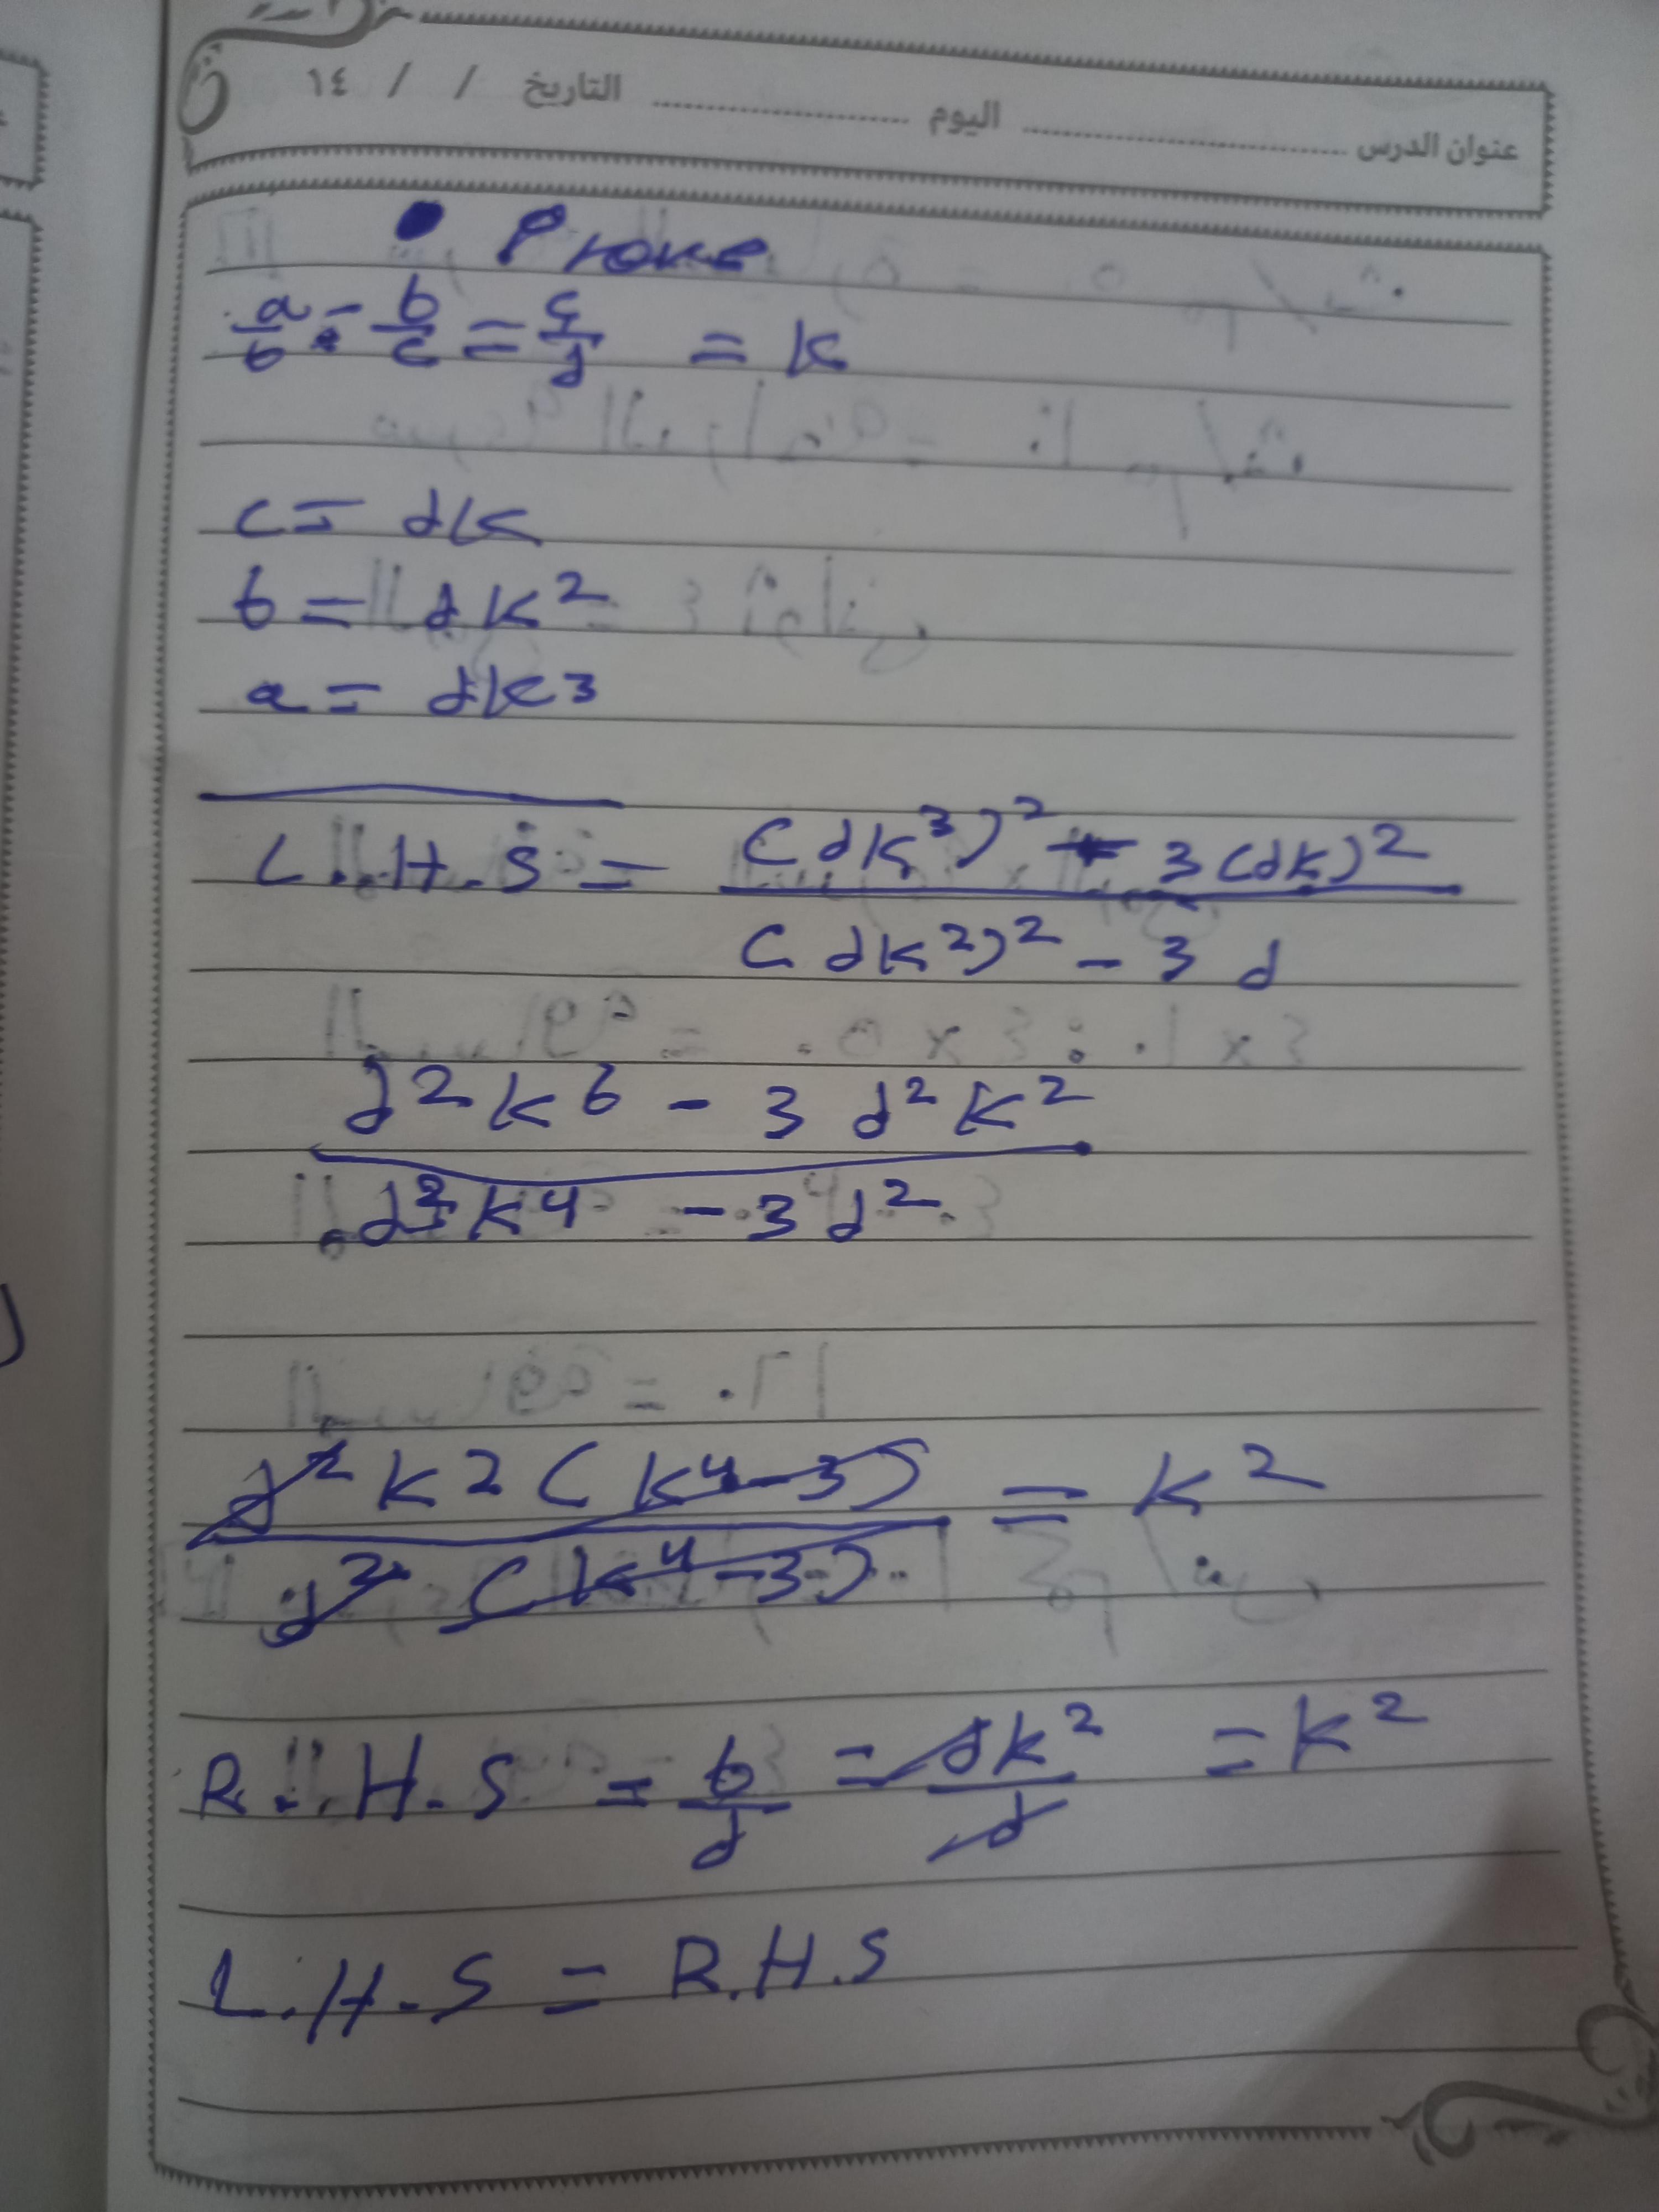 عنوان الدرس ........ اليوم ........ التاريخ / / ١٤
Prove
a/b = b/c = c/d = k
c = dk
b = dk²
a = dk3
L.H.S = (dk³)² - 3(dk)² / (dk²)² - 3d
d²k⁶ - 3d²k² / d²k⁴ - 3d²
d²k2(k⁴-3) / d²(k⁴-3) = k²
R.H.S = b/d = dk²/d = k²
L.H.S = R.H.S